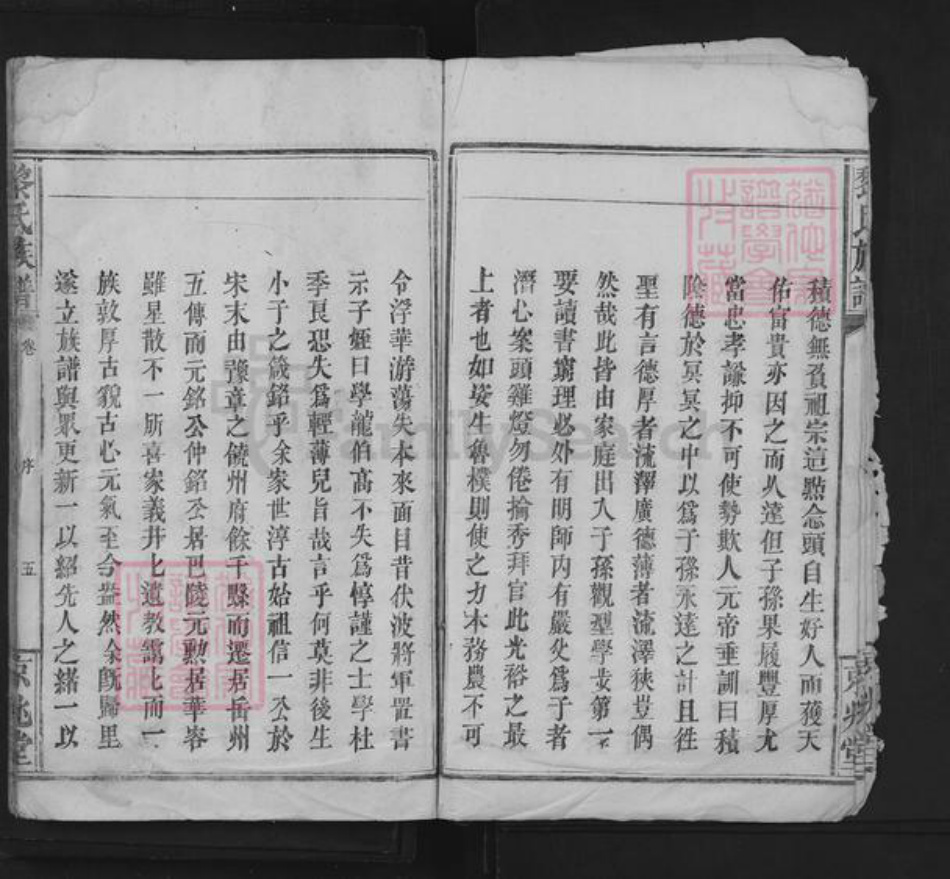 積德無負祖宗這點念頭自生好人而獲天
佑富貴亦因之而久遠但子孫果履豐厚尤
當忠孝謙抑不可使勢欺人元帝垂訓曰積
陰德於冥冥之中以爲子孫永遠之計且徃
聖有言德厚者流澤廣德薄者流澤狹豈偶
然哉此皆由家庭出入子孫觀型學步第一
要讀書窮理必外有明師內有嚴父爲子者
潛心案頭雞燈勿倦掄秀拜官此光裕之最
上者也如姿生魯樸則使之力本務農不可
令浮華游蕩失本來面目昔伏波將軍畱書
示子姪曰學龍伯高不失爲惇謹之士學杜
季良恐失爲輕薄兒旨哉言乎何莫非後生
小子之箴銘乎余家世淳古始祖信一公於
宋末由豫章之饒州府餘干縣而遷居岳州
五傳而元銘公仲銘公居巴陵元勲居華容
雖星散不一所喜家義井比遺教靄比而一
族敦厚古貌古心元氣至今盎然余旣歸里
遂立族譜與眾更新一以紹先人之緒一以
黎氏族譜
卷
序
五
京兆堂
FamilySearch